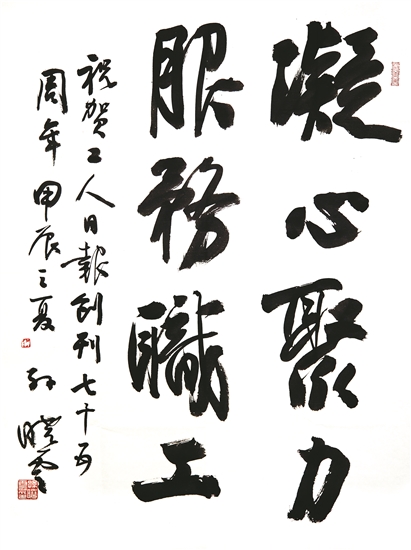 凝心聚力
服務職工
祝賀工人日報創刊七十五
周年 甲辰之夏 孙曉雲